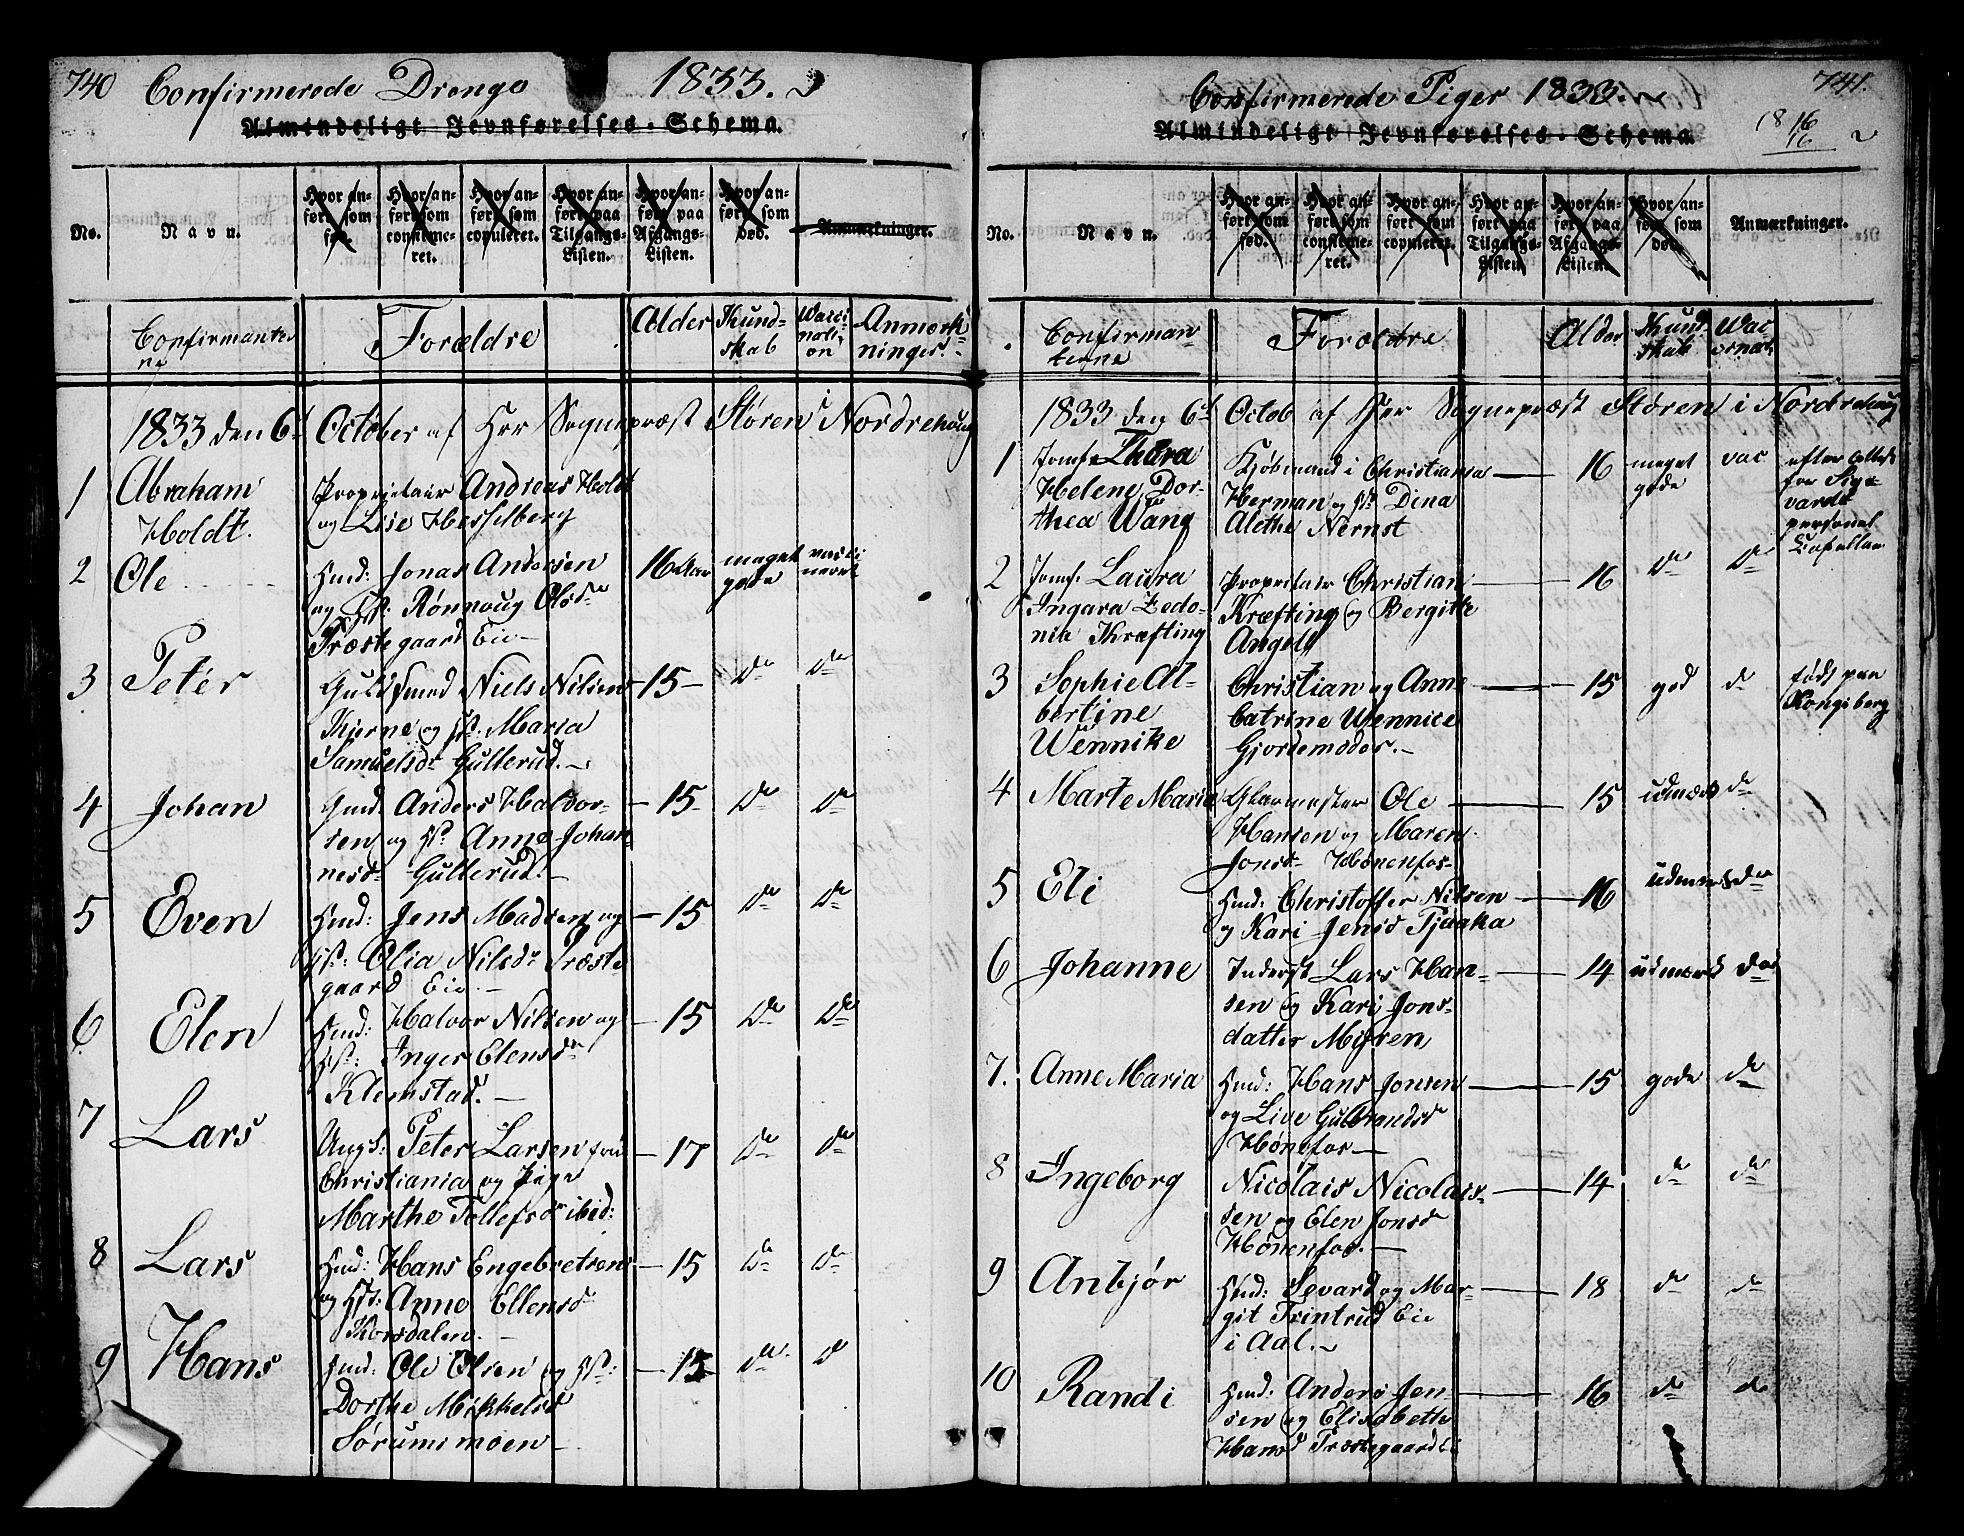 740 Confirmerede Drenge 1833.
Almindeligt Jevnførelses-Schema.
No.
Navn.
Hvor an-
ført som
fød.
Hvor an-
ført som
confirme-
ret.
Hvor an-
ført som
copuleret.
Hvor an-
ført paa
Tilgangs-
Listen.
Hvor an-
ført paa
Afgangs-
Listen.
Hvor an-
ført som
død.
Anmærkninger.
Confirmanter
ne
Forældre
Alder
Kund-
skab
Vacci-
nati-
on
Anmærk
ninger.
1833 den 6t October af Her Sognepræst Støren i Nordrehoug
1 Abraham
Holdt.
Proprietair Andreas Holdt
og Lise Hesselberg
2 Ole
Hmd: Jonas Andersen
og Hst: Rønnoug Olsdr
Præstegaard Eie
16 Aar meget
gode
vacci
neert
3 Peter
Guldsmed Niels Nilsen
Kjerne og Hst: Maria
Samuelsdr Gullerud.
15 do do
4 Johan
Gmd: Anders Haldor-
sen og Hst. Anne Johan-
nesd. Gullerud.
15 do do
5 Even
Hmd: Jens Madsen og
Hst: Olia Nilsdr Præste
gaard Eie.
15 do do
6 Elen
Hmd: Halvor Nilsen og
Hst: Inger Elensdr
Klemstad.
15 do do
7 Lars
Ungk: Peter Larsen fra
Christiania og Pige
Marthe Tollefsdr ibid:
17 do do
8 Lars
Hmd: Hans Engebretsen
og Hst: Anne Ellensd
Korsdalen.
15 do do
9 Hans
Hmd: Ole Olsen og Hst:
Dorthe Mikkelsd
Sørumsmoen
15 do do
741.
Confirmerede Piger 1833.
Almindeligt Jevnførelses-Schema.
18 16
16
No.
Navn.
Hvor an-
ført som
fød.
Hvor an-
ført som
confirme-
ret.
Hvor an-
ført som
copuleret.
Hvor an-
ført paa
Tilgangs-
Listen.
Hvor an-
ført paa
Afgangs-
Listen.
Hvor an-
ført som
død.
Anmærkninger.
Confirman-
terne
Forældre
Alder
Kund-
skab
Vac
cinat.
1833 den 6t Octob af Her Sognepræst Støren i Nordrehoug
1 Jomf. Thora
Helene Dor-
thea Wang
Kjøbmand i Christiania
Herman og Hst. Dina
Alethe Nernst
16 meget
gode
vac
for Sig-
vardt
personel
Capellan
2 Jomf. Laura
Ingara Zedo-
nia Kræfting
Proprietair Christian
Kræfting og Bergitte
Angell
16 do do
3 Sophie Al-
bertine
Wennike
Christian og Anne
Catrine Wennice
Gjordemoder.
15 god do
født paa
Kongsberg
4 Marte Maria
Glarmester Ole
Hansen og Maren
Jonsdr Hønenfos
15 udmærk do
5 Eli
Hmd: Christoffer Nilsen
og Kari Jensd Tjaaka
16 udmærk do
6 Johanne
Inderst Lars Han-
sen og Kari Jons-
datter Myren
14 udmærk do
7. Anne Maria
Hmd: Hans Jonsen
og Live Gulbrandsd
Hønefos
15 gode do
8 Ingeborg
Nicolais Nicolais-
sen og Elen Jonsd
Hønenfos.
14 do do
9 Anbjør
Hmd: Sevard og Mar-
git Trintrud Eie
i Aal.
18 do do
10 Randi
Hmd: Anders Jen-
sen og Elisabette
Hansd Præstegaards
16 do do